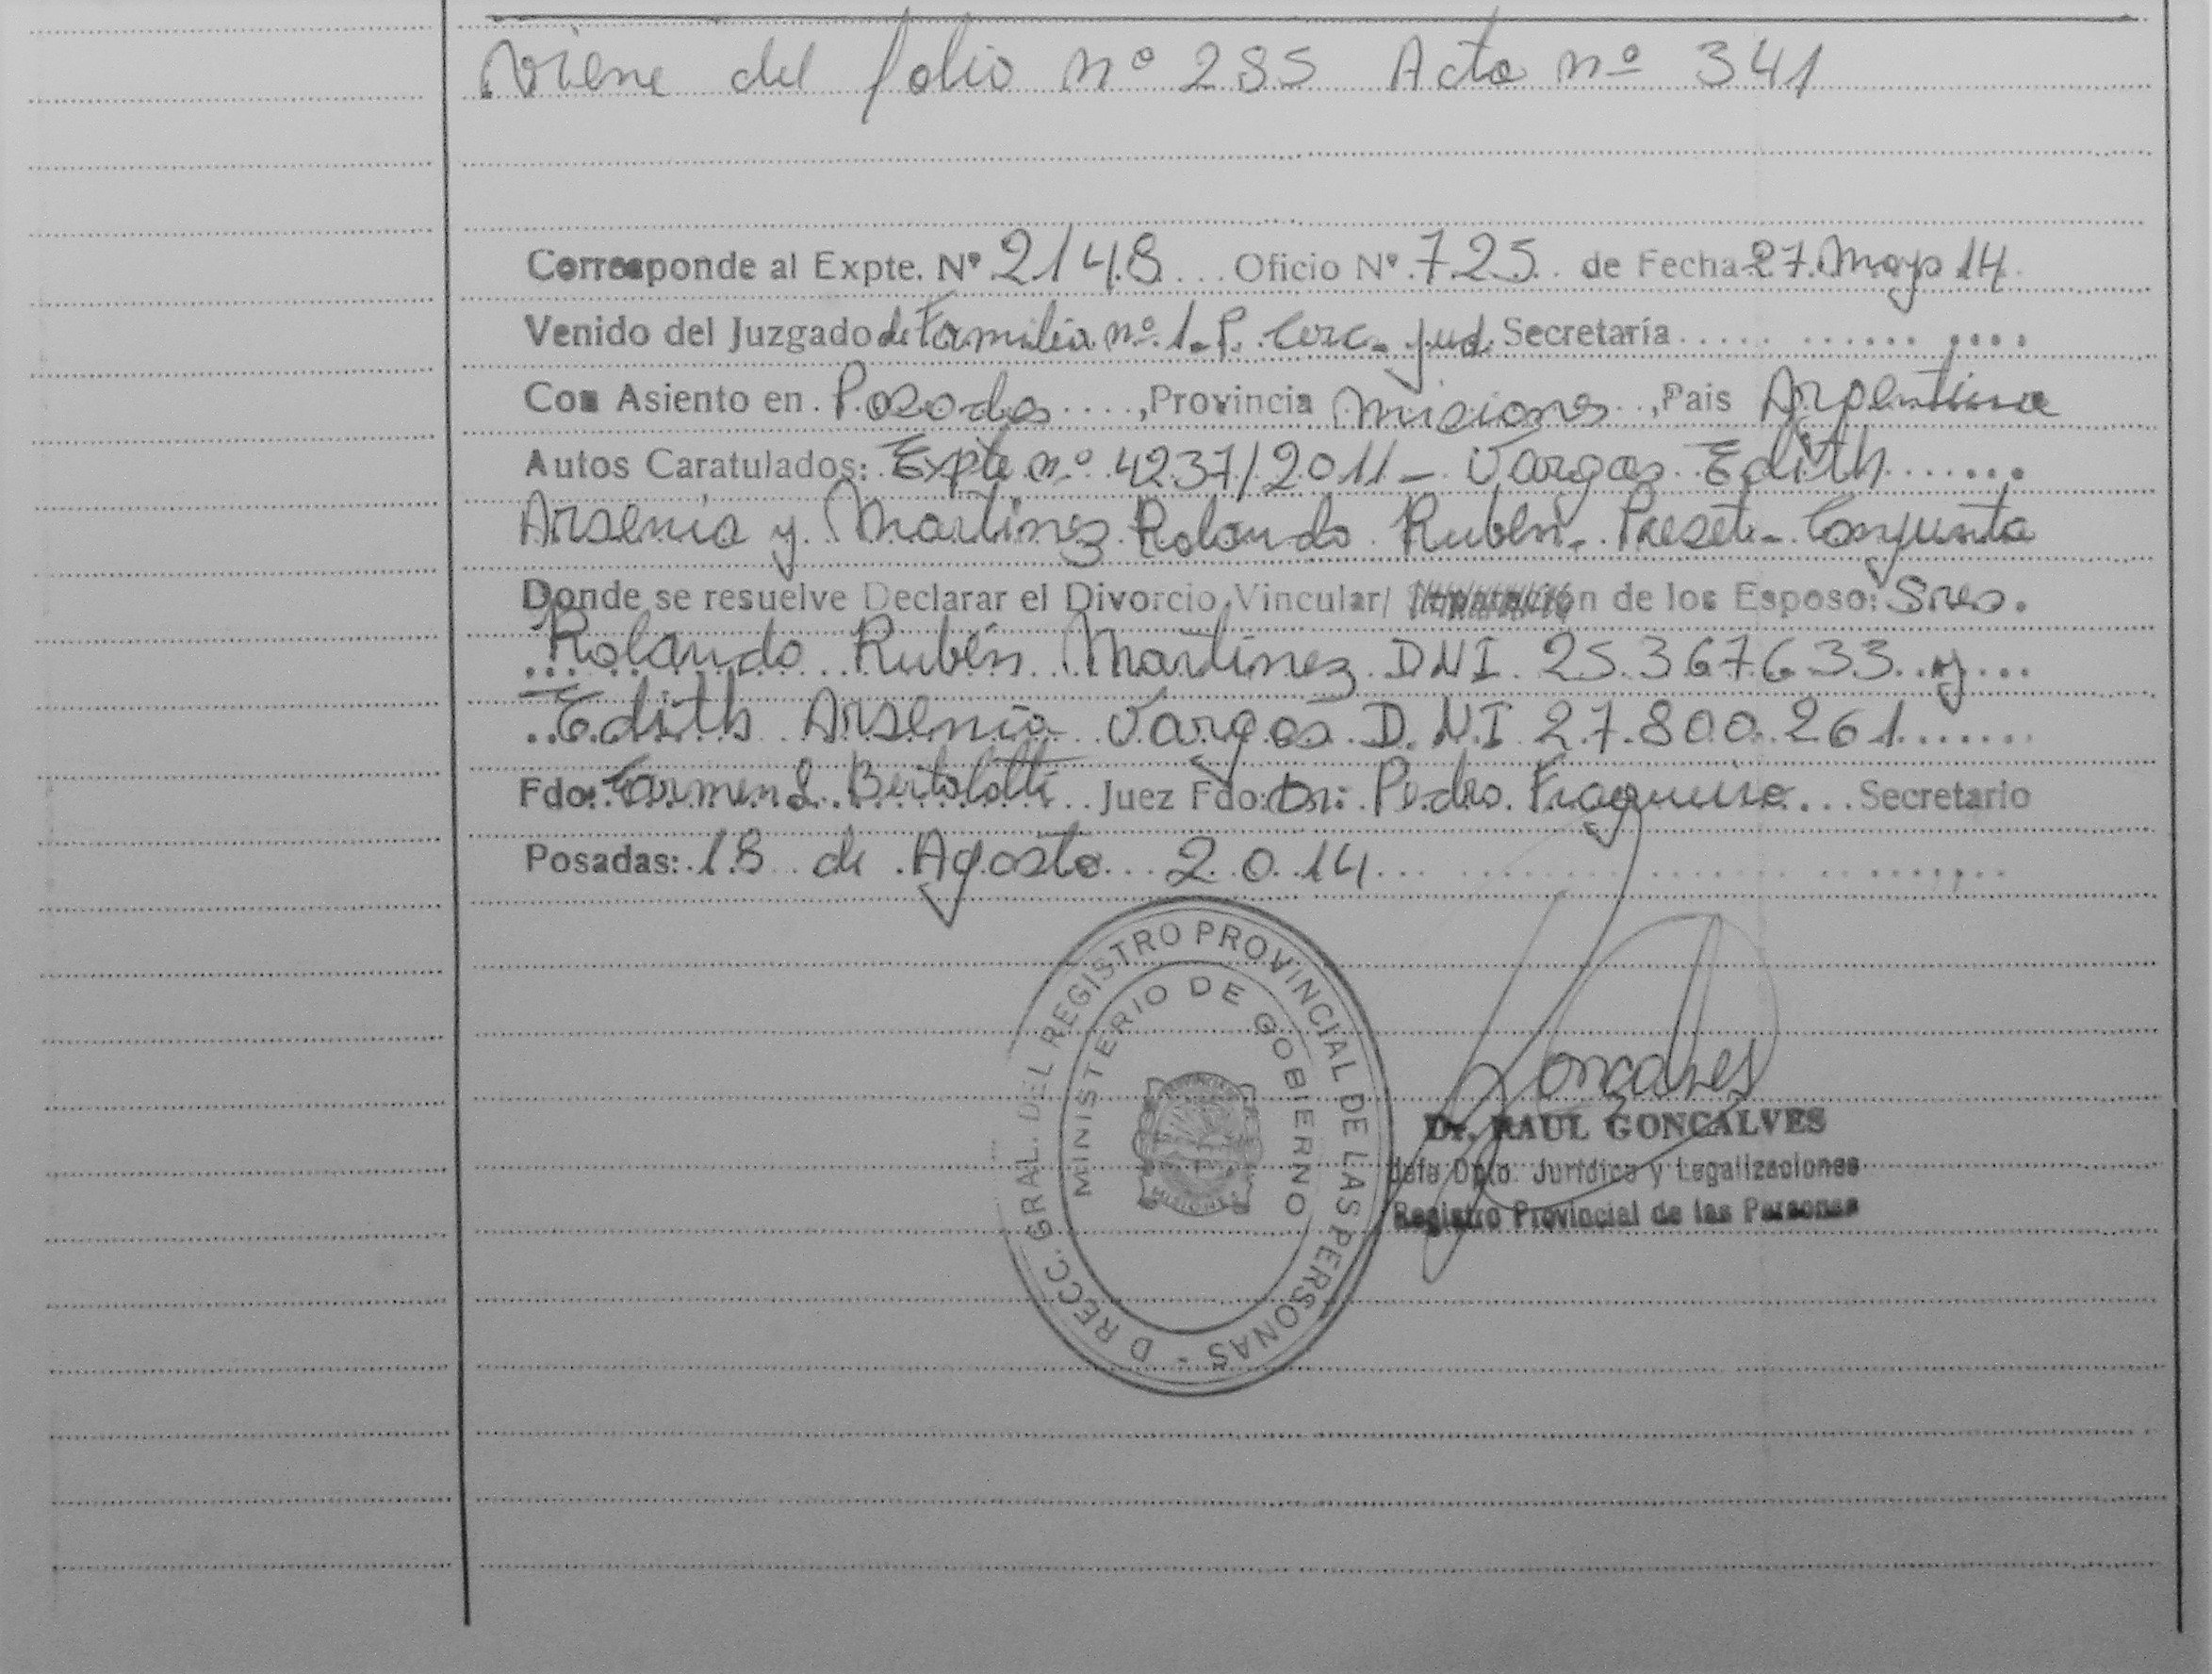 Viene del folio nº 285 Acta nº 341
Corresponde al Expte. Nº 2148 Oficio Nº 725 de Fecha 27 Mayo 14
Venido del Juzgado de Familia nº 1 - P. Circ. Jud. Secretaría
Con Asiento en Posadas, Provincia Misiones, Pais Argentina
Autos Caratulados: Expte nº 4237/2011 - Vargas Edith
Arsenia y Martinez Rolando Rubén - Conjunta
Donde se resuelve Declarar el Divorcio Vincular/ de los Esposo: Sres.
Rolando Rubén Martinez DNI 25.367.633 y
Edith Arsenia Vargas D.N.I 27.800.261
Fdo: Carmen L. Bertolotti Juez Fdo: Dr: Pedro Secretario
Posadas: 18 de Agosto 2014
DRECC. GRAL. DEL REGISTRO PROVINCIAL DE LAS PERSONAS -
MINISTERIO DE GOBIERNO
PROVINCIA
MISIONES
Goncalves
Dr. RAUL GONCALVES
Jefe Dpto. Jurídico y Legalizaciones
Registro Provincial de las Personas